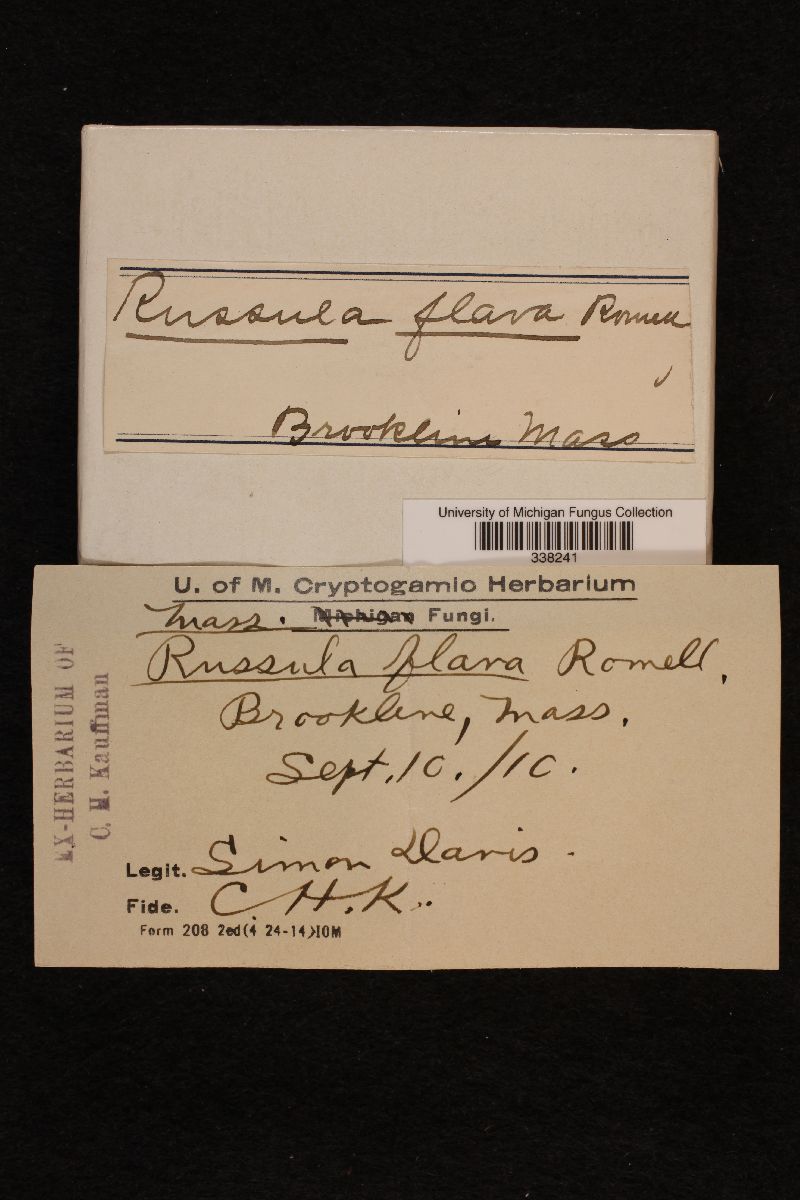 Russula flava Romell
Brookline Mass
University of Michigan Fungus Collection
338241
U. of M. Cryptogamic Herbarium
Mass. Michigan Fungi.
Russula flava Romell,
Brookline, Mass.
Sept. 10. /10.
Legit. Simon Davis.
Fide. C. H. K.
Form 208 2ed(4 24-14)10M
EX-HERBARIUM OF
C. H. Kauffman